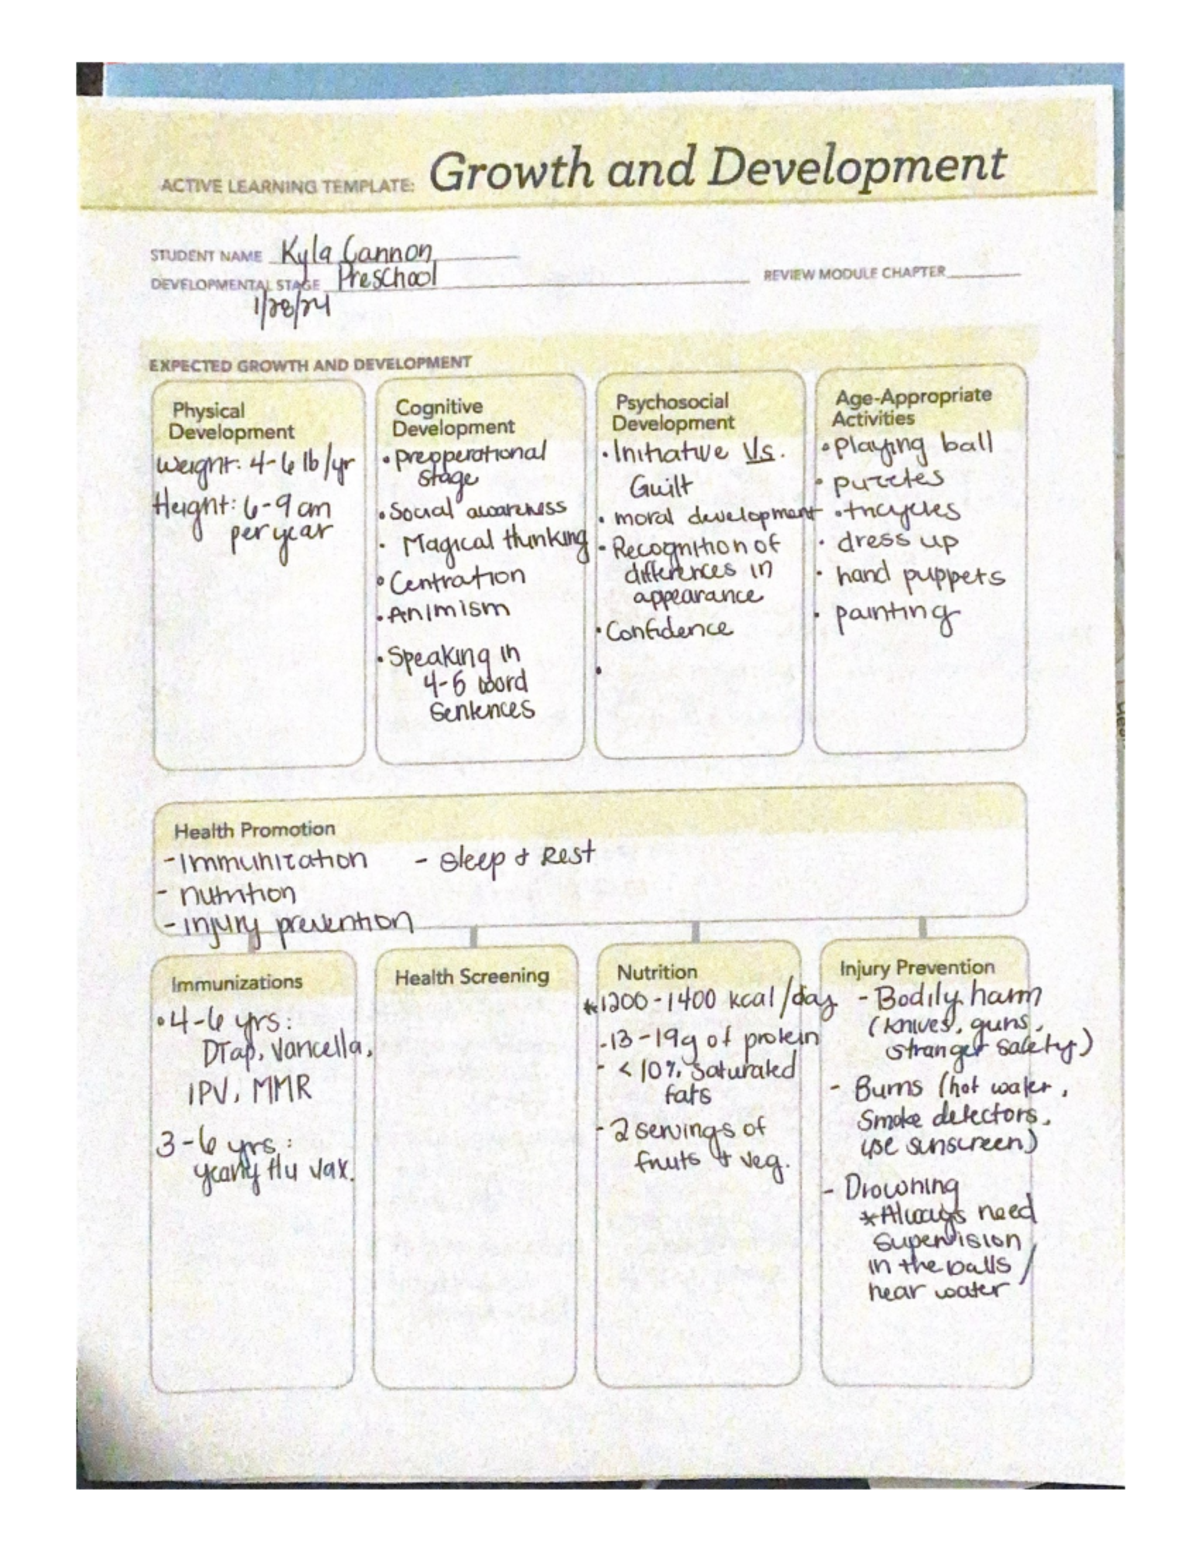 ACTIVE LEARNING TEMPLATE: Growth and Development
STUDENT NAME Kyla Cannon
DEVELOPMENTAL STAGE Preschool
REVIEW MODULE CHAPTER
1/28/24
EXPECTED GROWTH AND DEVELOPMENT
Physical
Development
Weight: 4-6 lb/yr
Height: 6-9 cm
per year
Cognitive
Development
• prepperational
stage
• Social awareness
• Magical thinking
• Centration
• Animism
• Speaking in
4-5 word
sentences
Psychosocial
Development
• Initiative Vs.
Guilt
• moral development
• Recognition of
differences in
appearance
• Confidence
•
Age-Appropriate
Activities
• Playing ball
• puzzles
• tricycles
• dress up
• hand puppets
• painting
Health Promotion
- Immunization
- Sleep & Rest
- nutrition
- injury prevention
Immunizations
• 4-6 yrs:
DTap, Varicella,
IPV, MMR
3-6 yrs:
yearly flu vax.
Health Screening
Nutrition
*1200-1400 kcal/day
- 13-19g of protein
- <10% saturated
fats
- 2 servings of
fruits & veg.
Injury Prevention
- Bodily harm
(knives, guns,
stranger safety)
- Burns (hot water,
Smoke detectors,
use sunscreen)
- Drowning
*Always need
supervision
in the balls /
near water